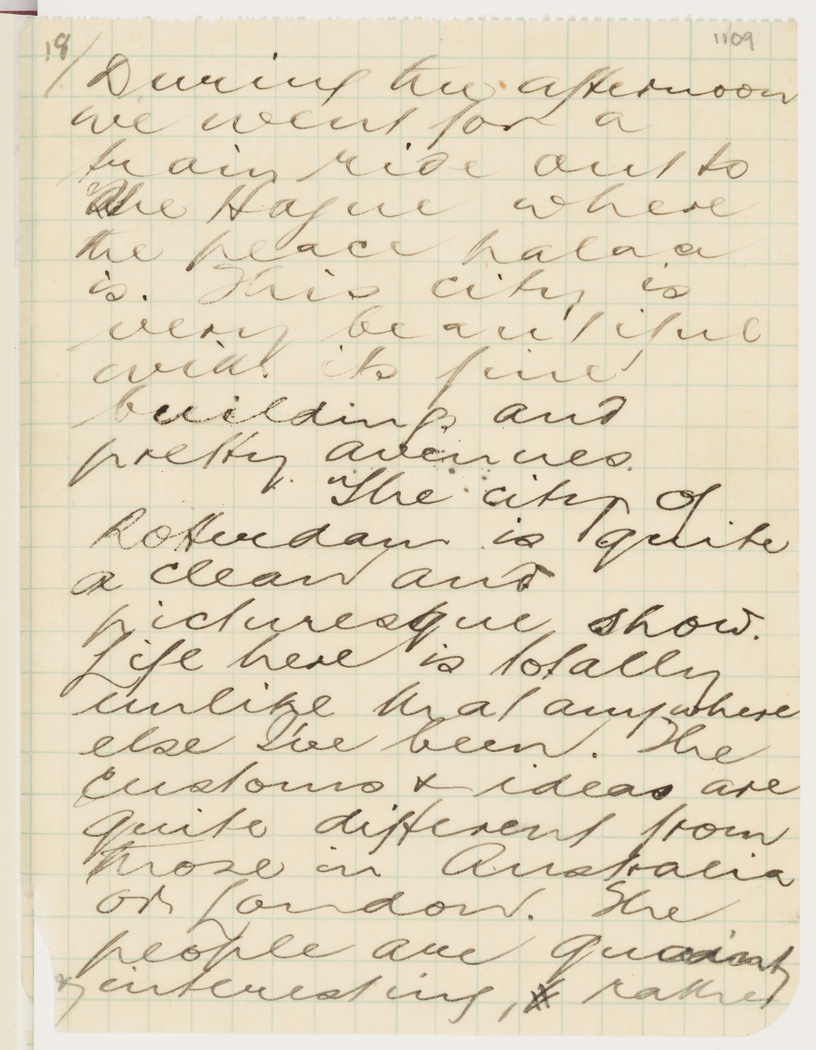 18/ 1109
During the afternoon
we went for a
train ride out to
the Hague where
the peace palace
is. This city is
very beautiful
with its fine
buildings and
pretty avenues.
The city of
Rotterdam is quite
a clean and
picturesque show.
Life here is totally
unlike that anywhere
else I've been. The
customs & ideas are
quite different from
those in Australia
or London. The
people are quaint
& interesting, rather